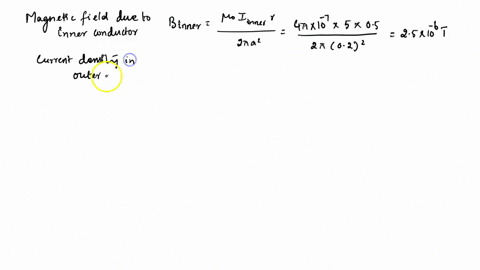 Magnetic field due to
Inner conductor
B Inner = μ₀ I inner r / 2πa² = 4π×10⁻⁷ × 5 × 0.5 / 2π (0.2)² = 2.5×10⁻⁶ T
Current density in
outer